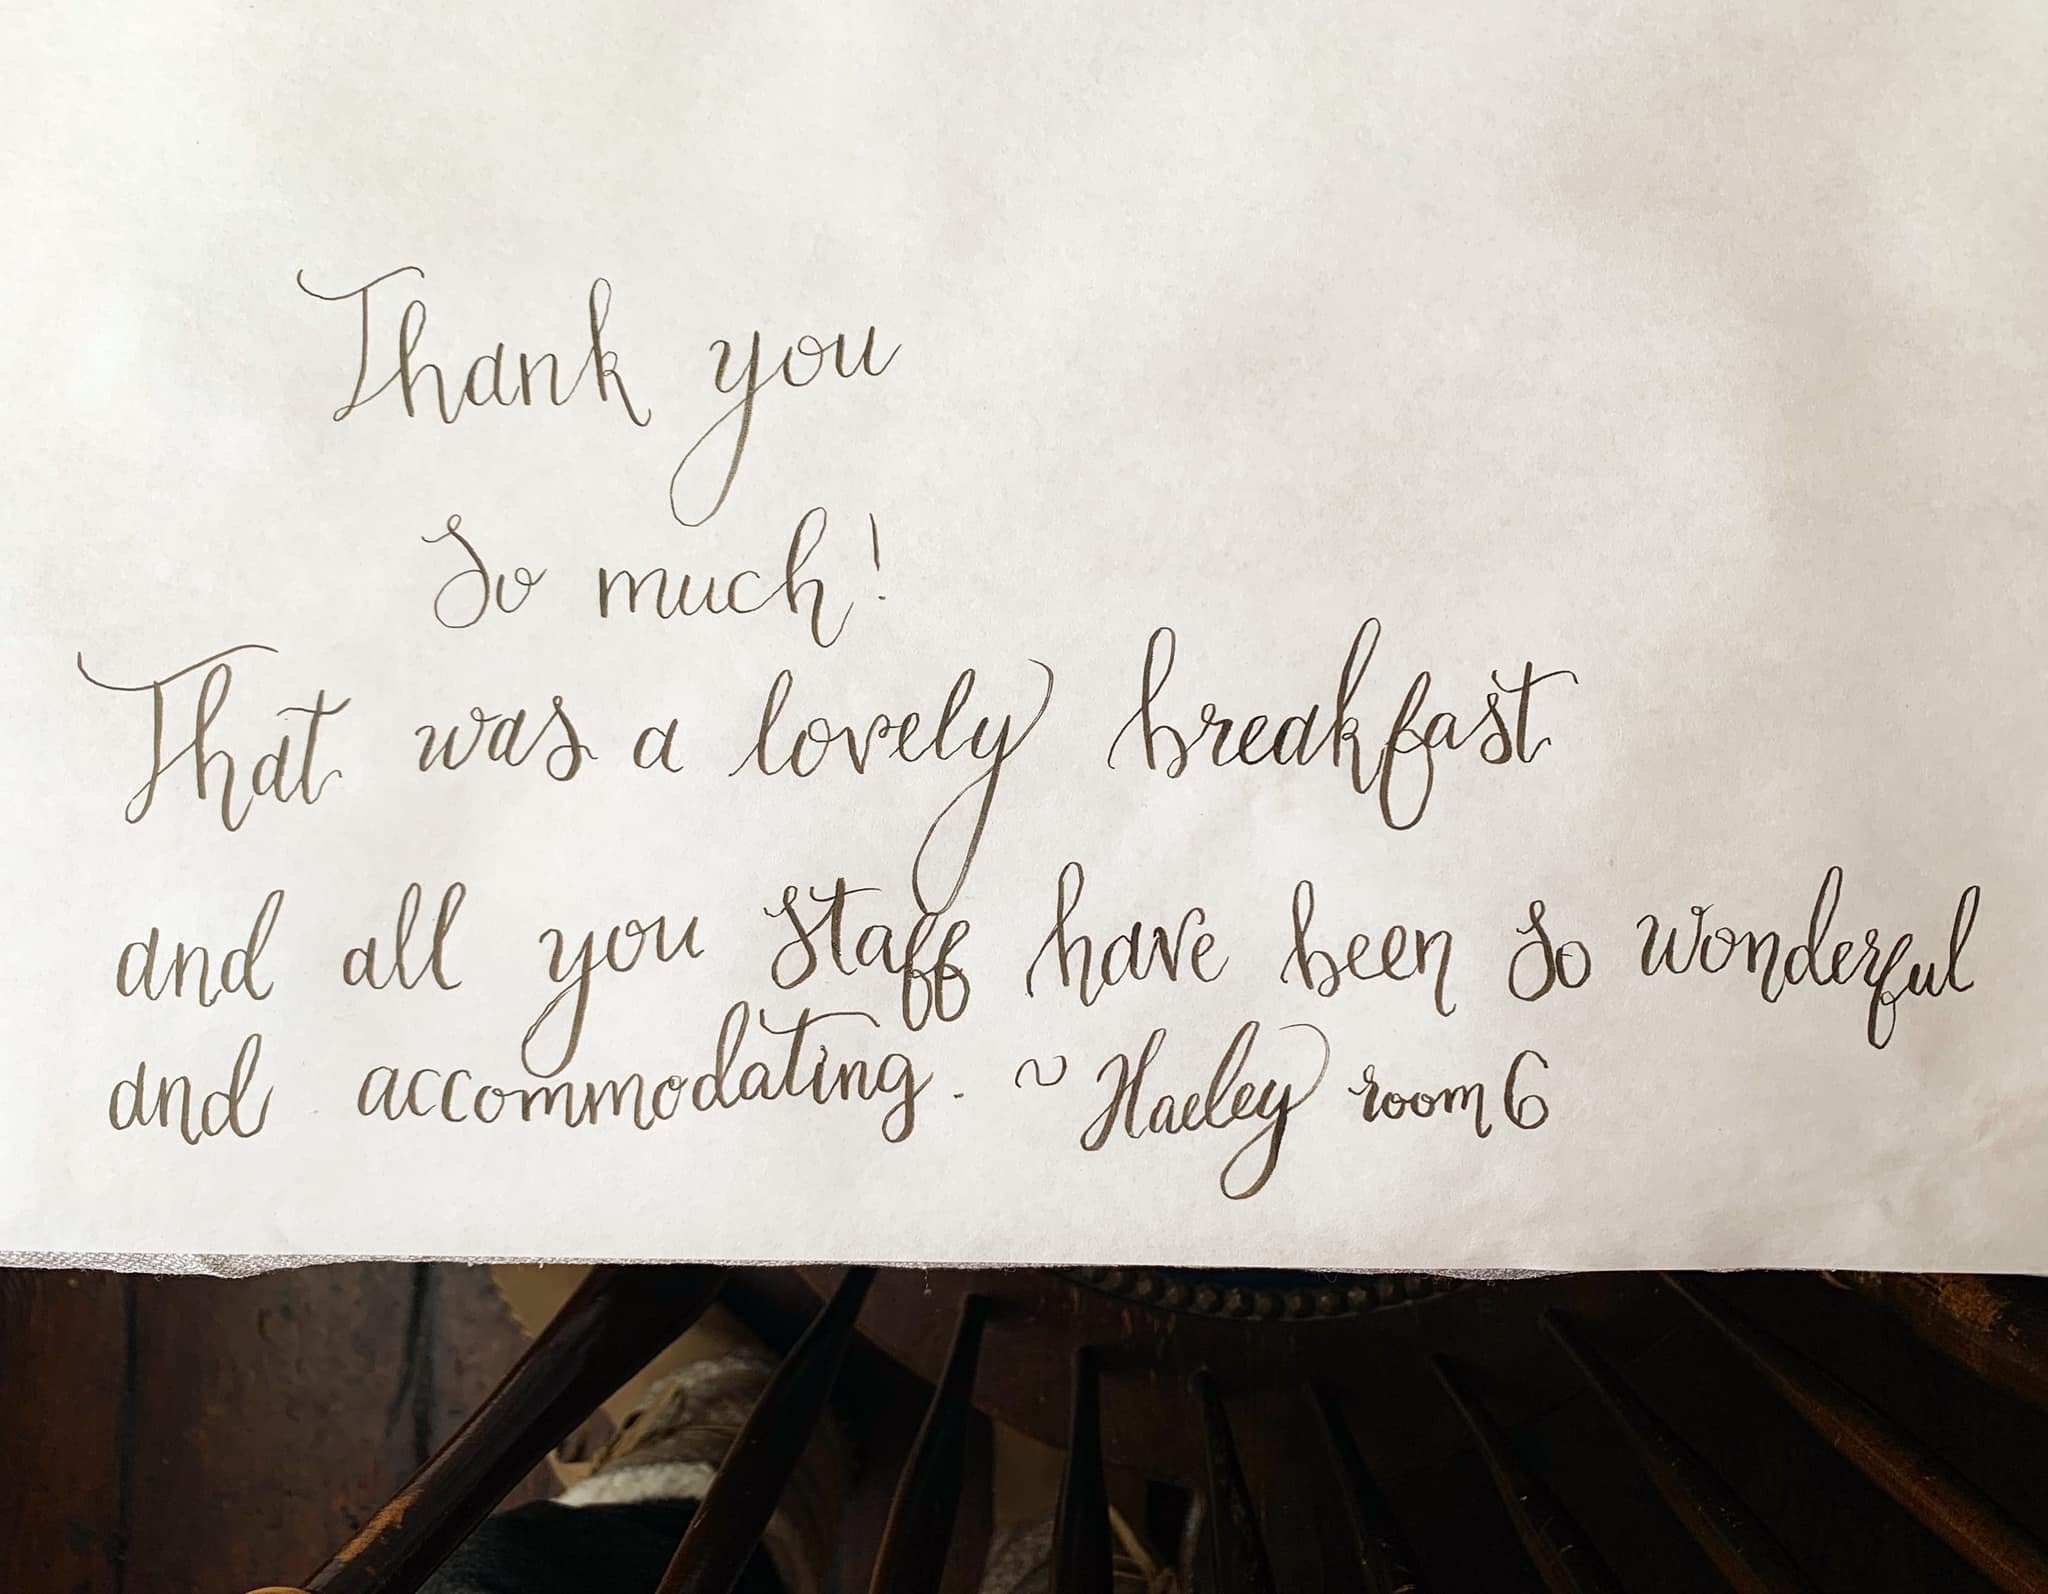 Thank you
So much!
That was a lovely breakfast
and all you staff have been so wonderful
and accommodating. ~ Haeley room 6